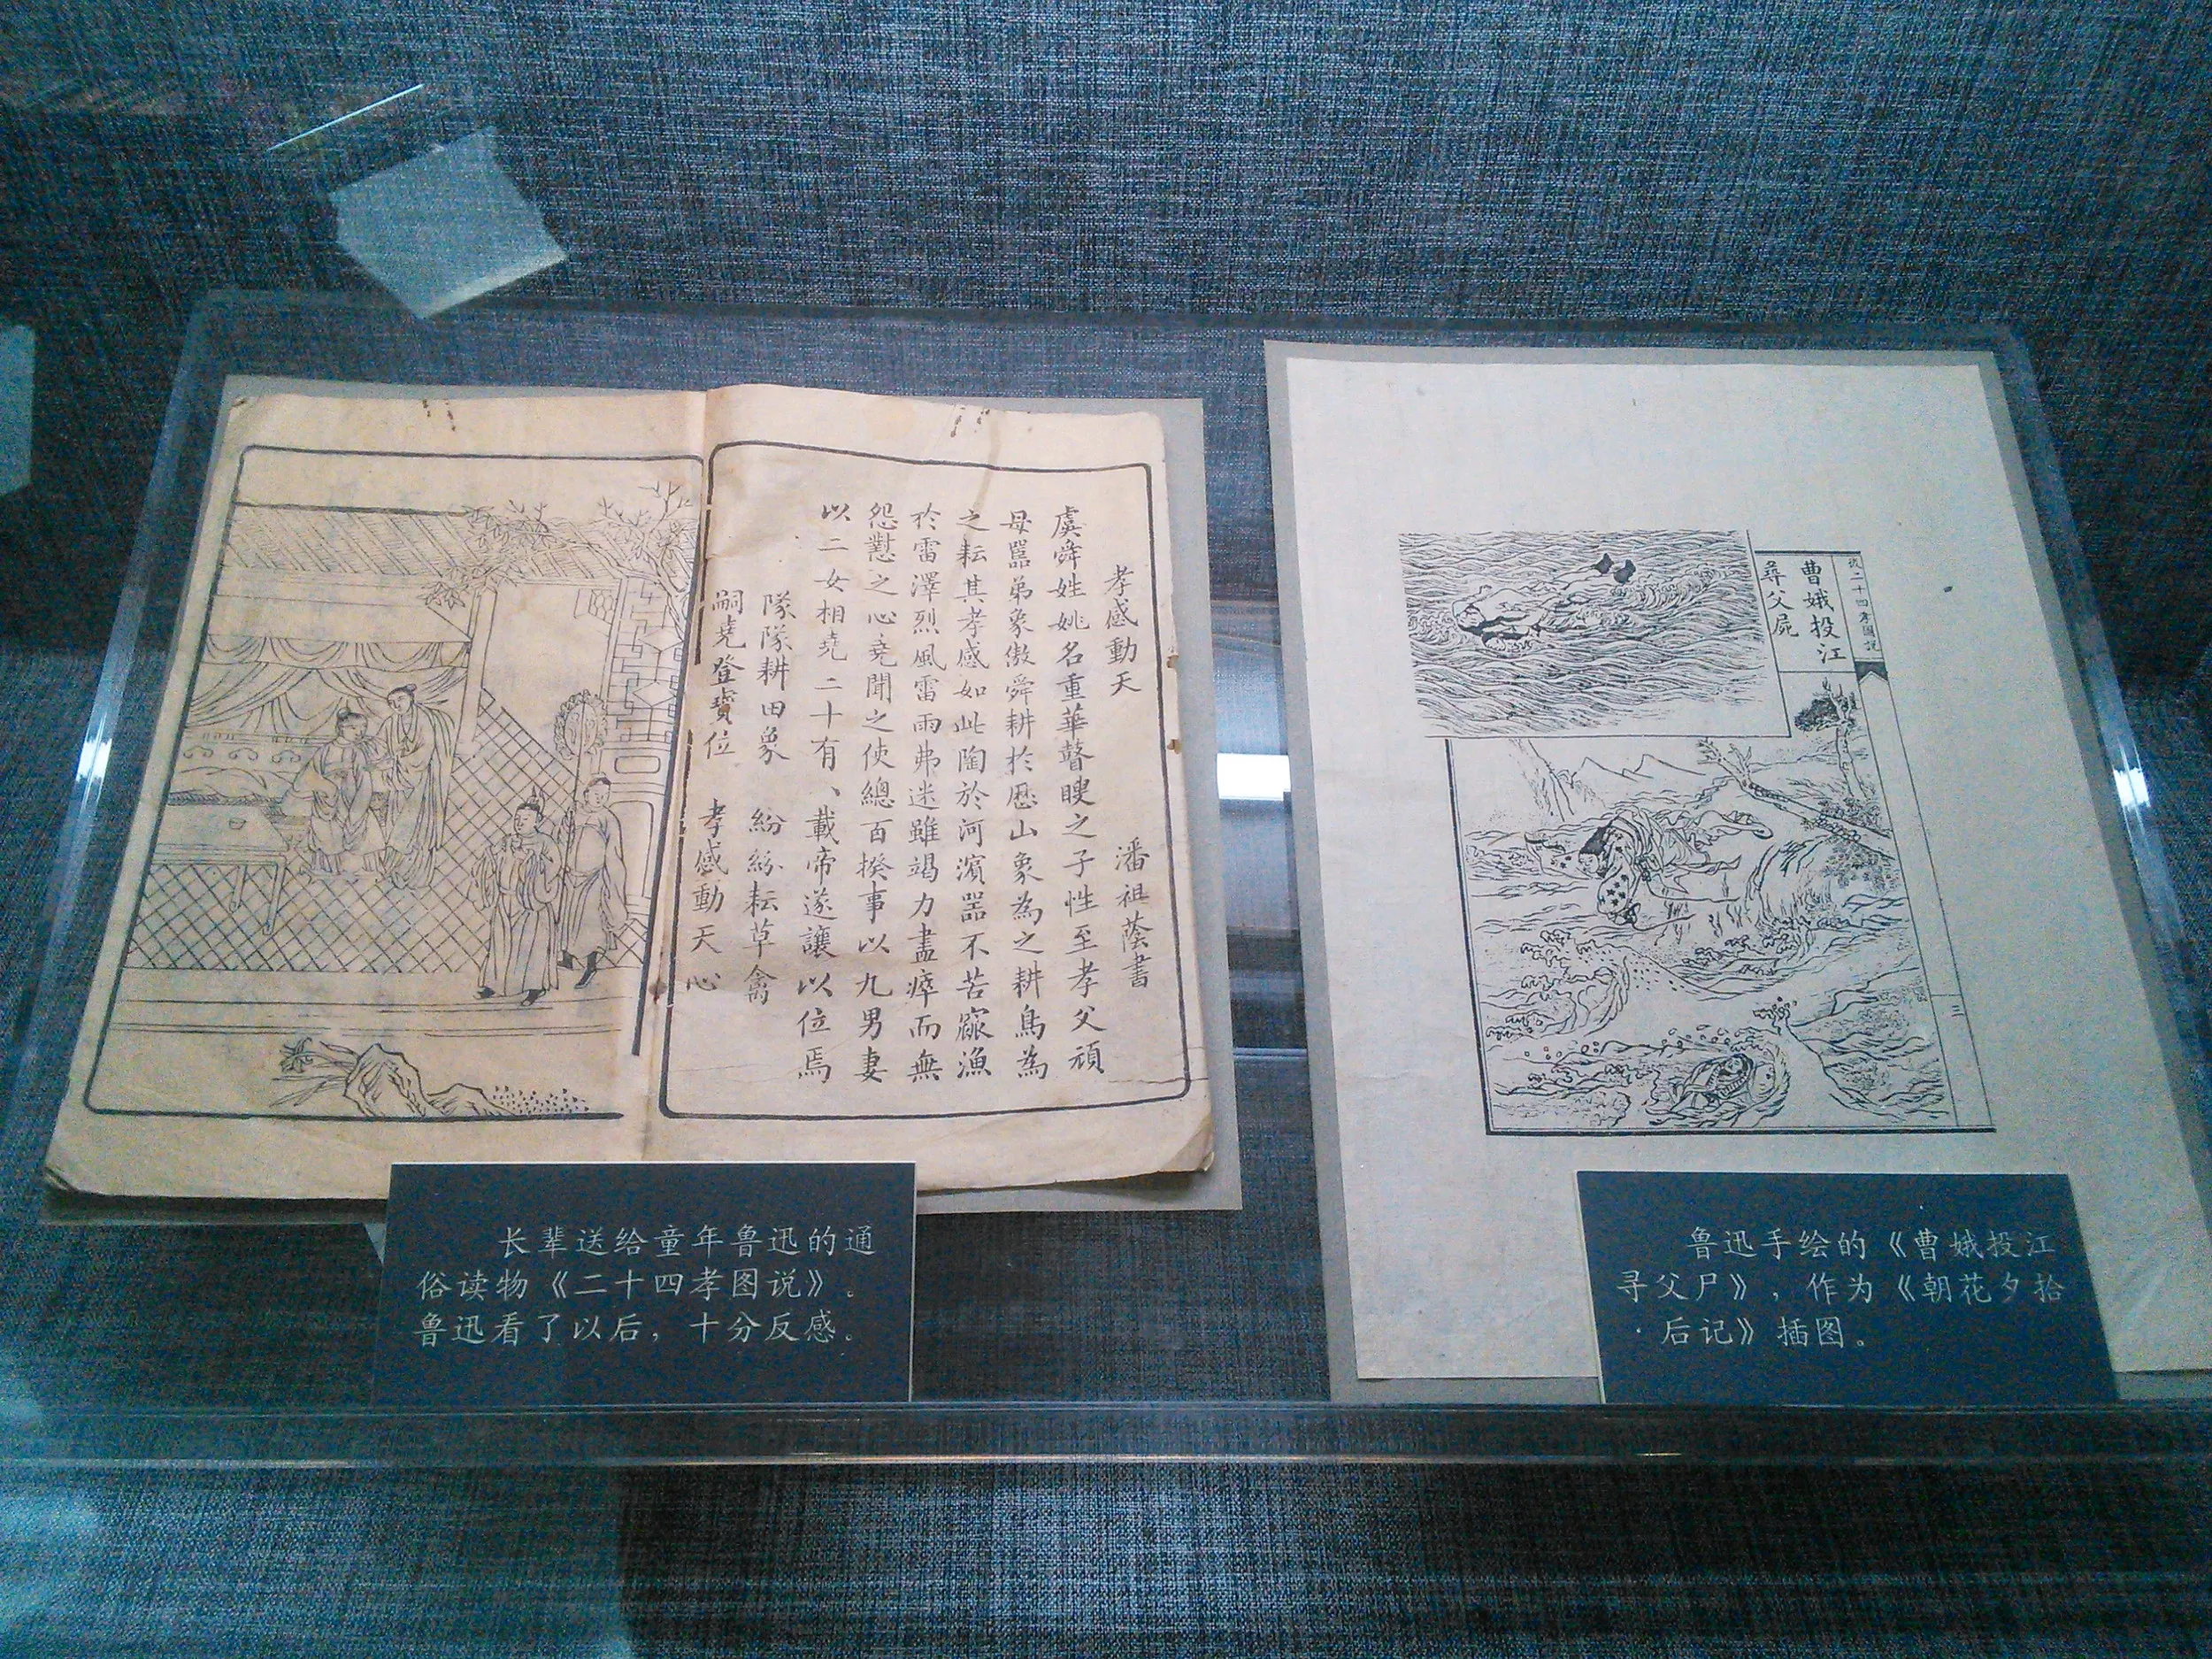 孝感動天
潘祖蔭書
虞舜姓姚名重華瞽瞍之子性至孝父頑
母嚚弟象傲舜耕於歷山象為之耕鳥為
之耘其孝感如此陶於河濱器不苦窳漁
於雷澤烈風雷雨弗迷雖竭力盡瘁而無
怨懟之心堯聞之使總百揆事以九男妻
以二女相堯二十有、載帝遂讓以位焉
隊隊耕田象 紛紛耘草禽
嗣堯登寶位 孝感動天心
二十四孝圖說
曹娥投江
尋父屍
三
长辈送给童年鲁迅的通
俗读物《二十四孝图说》。
鲁迅看了以后，十分反感。
鲁迅手绘的《曹娥投江
寻父尸》，作为《朝花夕拾
·后记》插图。